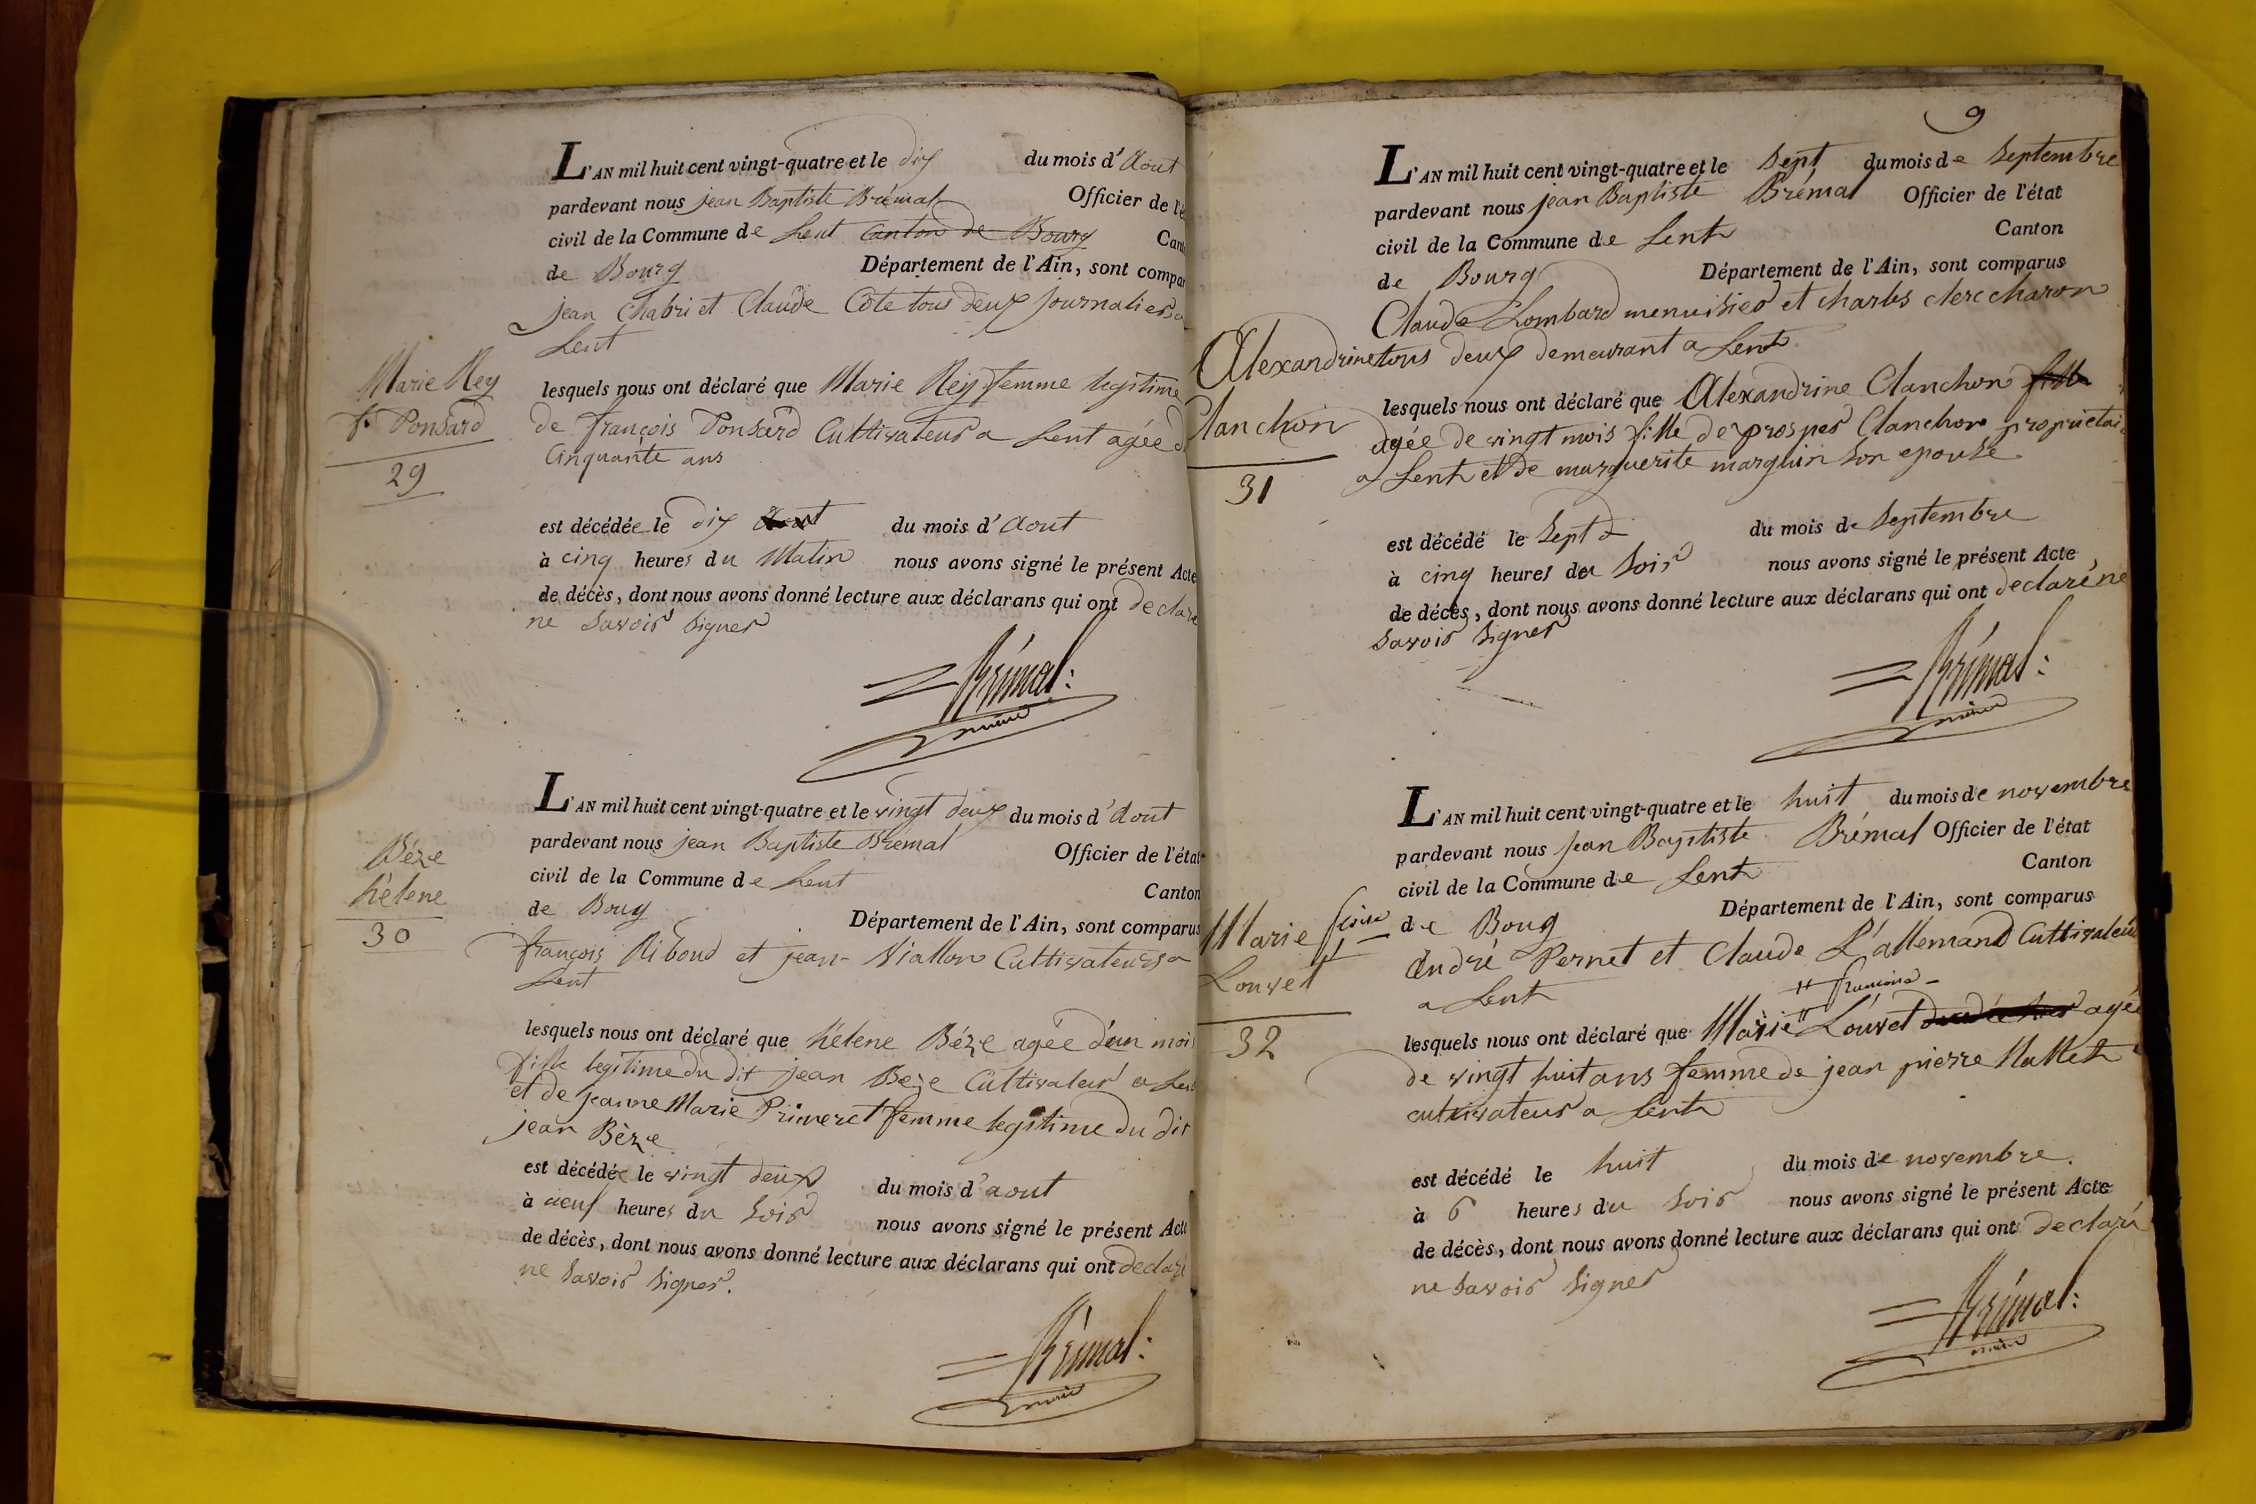 L'AN mil huit cent vingt-quatre et le dix du mois d'Aout
pardevant nous jean Baptiste Brémal Officier de l'é
civil de la Commune de Lent Canton de Bourg Cant
de Bourg Département de l'Ain, sont compar
jean Chabri et Claude Cote tous deux journaliers a
Lent
Marie Rey
f. Ponsard
29
lesquels nous ont déclaré que Marie Rey femme legitime
de françois Ponsard Cultivateur a Lent agée d
Cinquante ans
est décédée le dix Aout du mois d'Aout
à cinq heures du Matin nous avons signé le présent Acte
de décès, dont nous avons donné lecture aux déclarans qui ont declaré
ne savoir signer
Brémal:
maire
L'AN mil huit cent vingt-quatre et le vingt deux du mois d'Aout
pardevant nous jean Baptiste Bremal Officier de l'état
civil de la Commune de Lent Canton
de Boug Département de l'Ain, sont comparus
françois Riboud et jean Viallon Cultivateurs a
Lent
Béze
hélene
30
lesquels nous ont déclaré que hélene Béze agée d'un mois
fille legitime du dit jean Beze Cultivateur a Lent
et de jeanne Marie Primeret femme legitime du dit
jean Bèze
est décédée le vingt deux du mois d'aout
à neuf heures du Soir nous avons signé le présent Acte
de décès, dont nous avons donné lecture aux déclarans qui ont declaré
ne savoir signer.
Brémal:
maire
9
L'AN mil huit cent vingt-quatre et le Sept du mois de Septembre
pardevant nous jean Baptiste Brémal Officier de l'état
civil de la Commune de Lent Canton
de Bourg Département de l'Ain, sont comparus
Claude Lombard menuisier et charles clerc charon
tous deux demeurant a Lent
Alexandrine
Clanchon
31
lesquels nous ont déclaré que Alexandrine Clanchon fille
agée de vingt mois fille de prosper Clanchon proprietai
a Lent et de marguerite marguin son epouse
est décédé le Sept du mois de Septembre
à cinq heures du Soir nous avons signé le présent Acte
de décès, dont nous avons donné lecture aux déclarans qui ont declaré ne
savoir signer
Brémal:
maire
L'AN mil huit cent vingt-quatre et le huit du mois de novembre
pardevant nous jean Baptiste Brémal Officier de l'état
civil de la Commune de Lent Canton
de Boug Département de l'Ain, sont comparus
André Pernet et Claude L'allemand Cultivateur
a Lent
Marie
Louvet
32
lesquels nous ont déclaré que Marie Louvet agée
de vingt huit ans femme de jean pierre Mallet
cultivateur a Lent
est décédé le huit du mois de novembre.
à 6 heures du soir nous avons signé le présent Acte
de décès, dont nous avons donné lecture aux déclarans qui ont declaré
ne savoir signer
Brémal:
maire